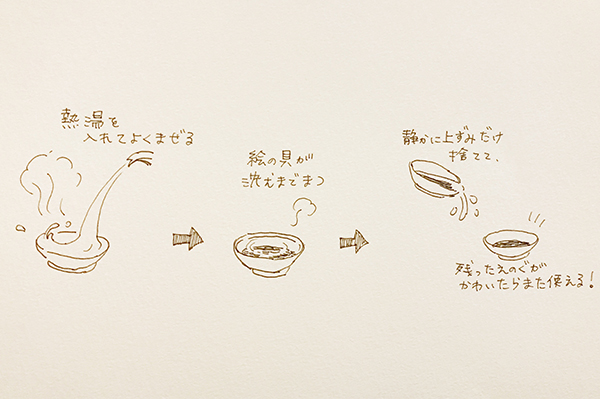 熱湯を
入れてよくまぜる
絵の具が
沈むまでまつ
静かに上ずみだけ
捨てて、
残ったえのぐが
かわいたらまた使える!